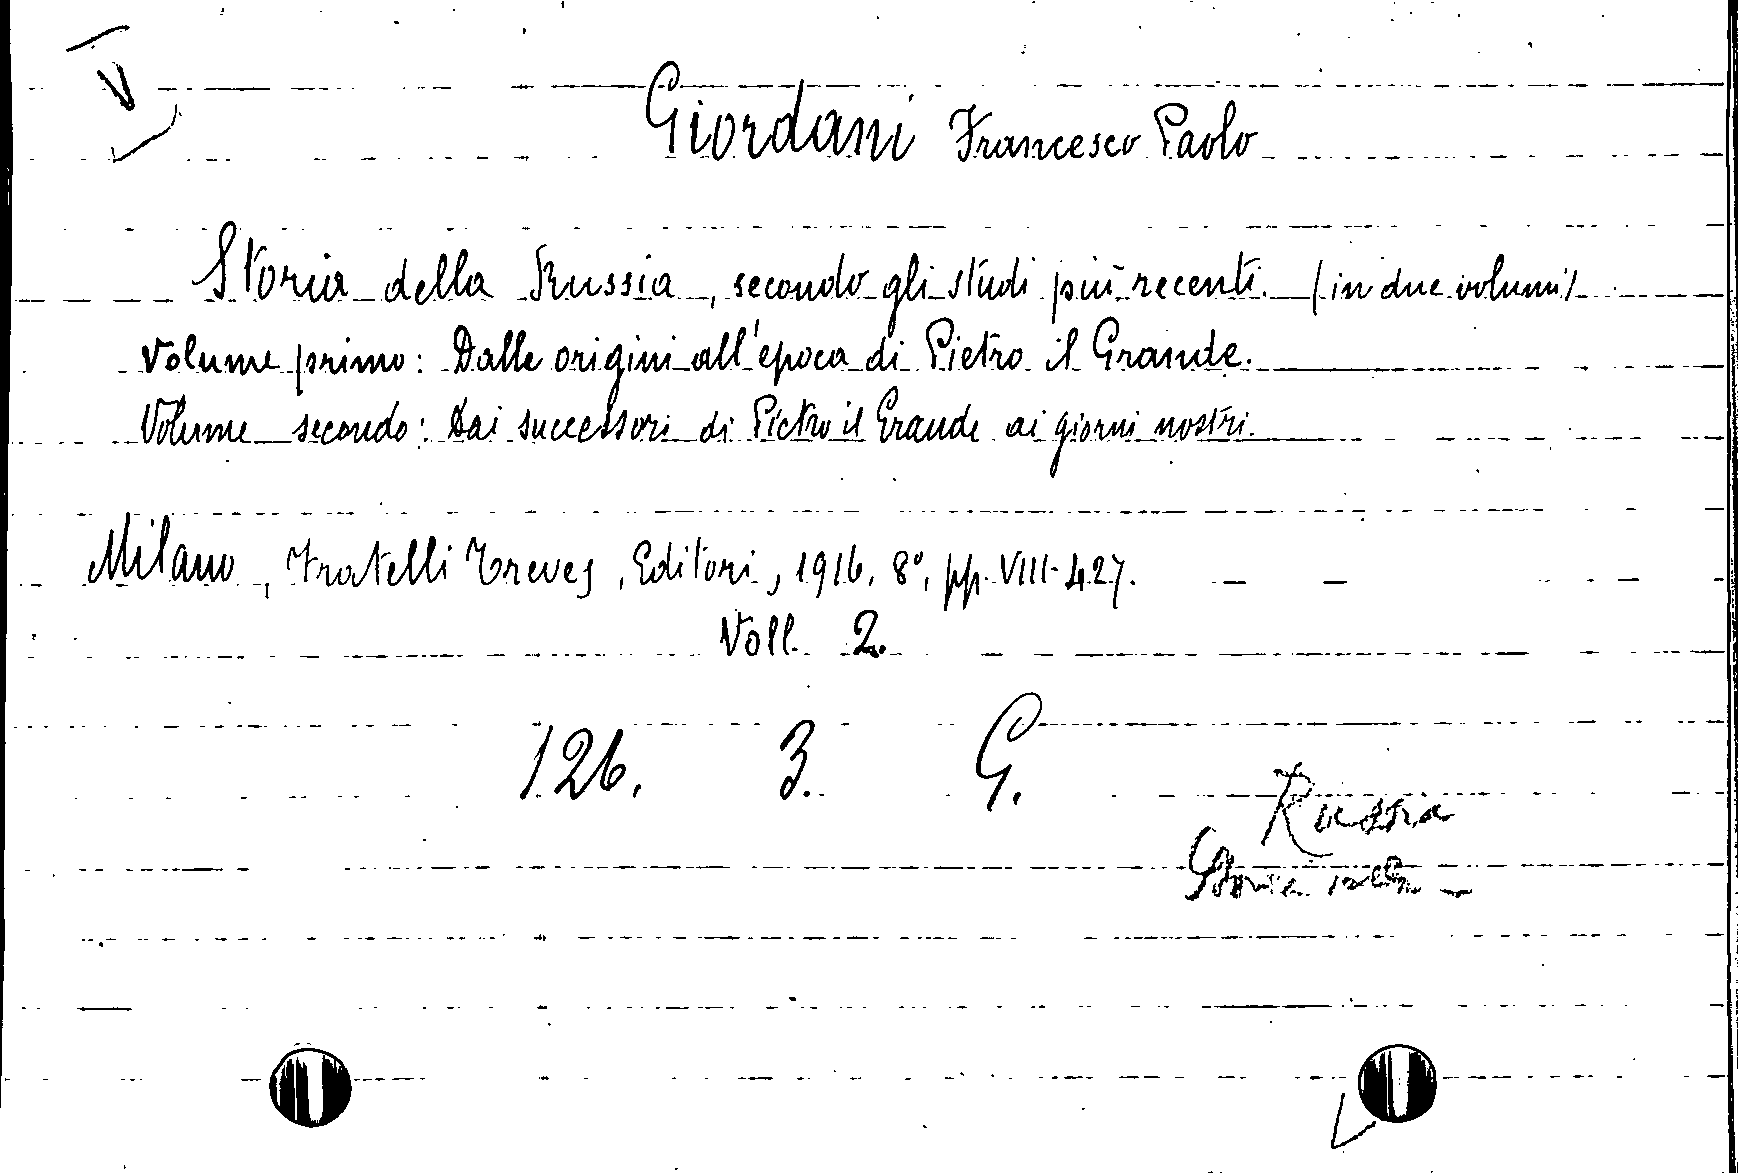 V
Giordani Francesco Paolo
Storia della Russia, secondo gli studi più recenti. (in due volumi)
Volume primo: Dalle origini all'epoca di Pietro il Grande.
Volume secondo: Dai successori di Pietro il Grande ai giorni nostri.
Milano, Fratelli Treves, Editori, 1916. 8°, pp. VIII-427.
Voll. 2.
126. 3. G.
Russia
Storia della -